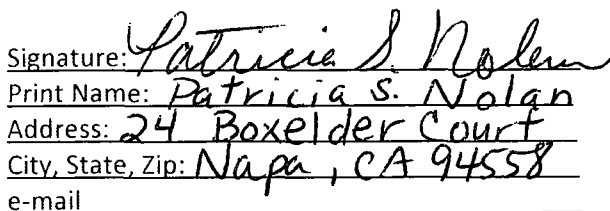 Signature: Patricia S. Nolan
Print Name: Patricia S. Nolan
Address: 24 Boxelder Court
City, State, Zip: Napa, CA 94558
e-mail